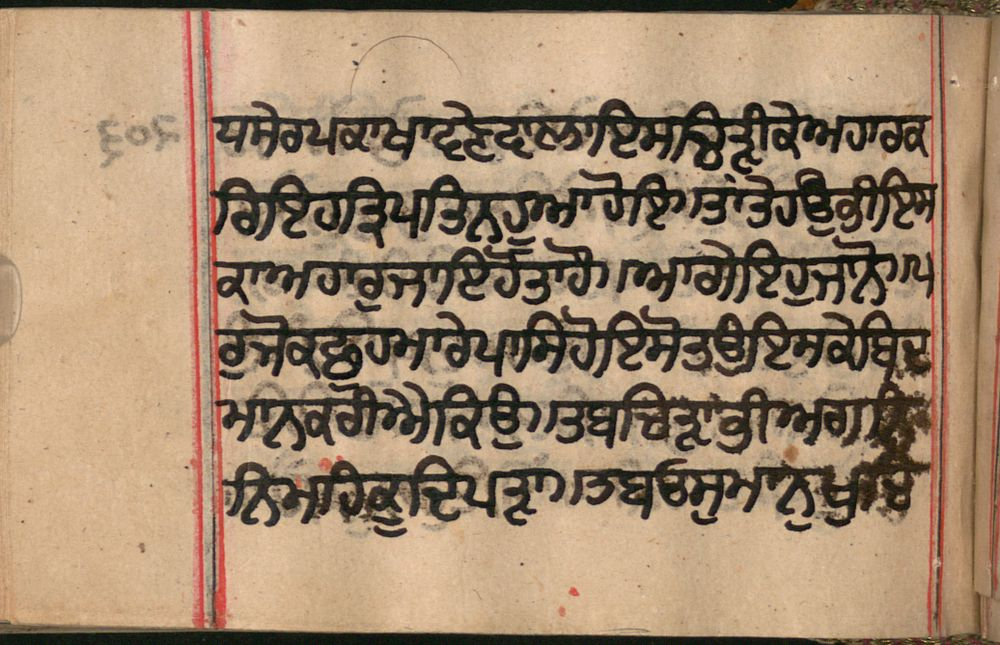 ਧਸੇਰਪਕਾਖਾਵਣੇਵਾਲਾਇਸਚਿਤ੍ਰੀਕੇਅਹਾਰਕ
ਰਿਇਹਤ੍ਰਿਪਤਿਨਹੂਆਹੋਇ॥ਤਾਂਤੋਹਉਕੀਇਸ
ਕਾਅਹਾਰੁਜਾਇਹੋਤਾਹੈ॥ਆਗੇਇਹੁਜਾਨੋ॥ਪ
ਰੁਜੋਕਛੁਹਮਾਰੇਪਾਸਿਹੋਇਸੋਤਉਇਸਕੇਬਿਦ
ਮਾਨਕਰੀਐਕਿਉ॥ਤਬਚਿਤ੍ਰਾਕੀਅਗ
ਨਿਮਾਹਿਕੂਦਿਪਤ੍ਰਾ॥ਤਬਓਸੁਮਾਨੁਖੁ